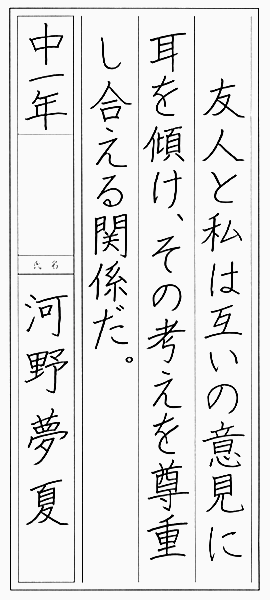 友人と私は互いの意見に
耳を傾け、その考えを尊重
し合える関係だ。
中一年
氏名
河野夢夏